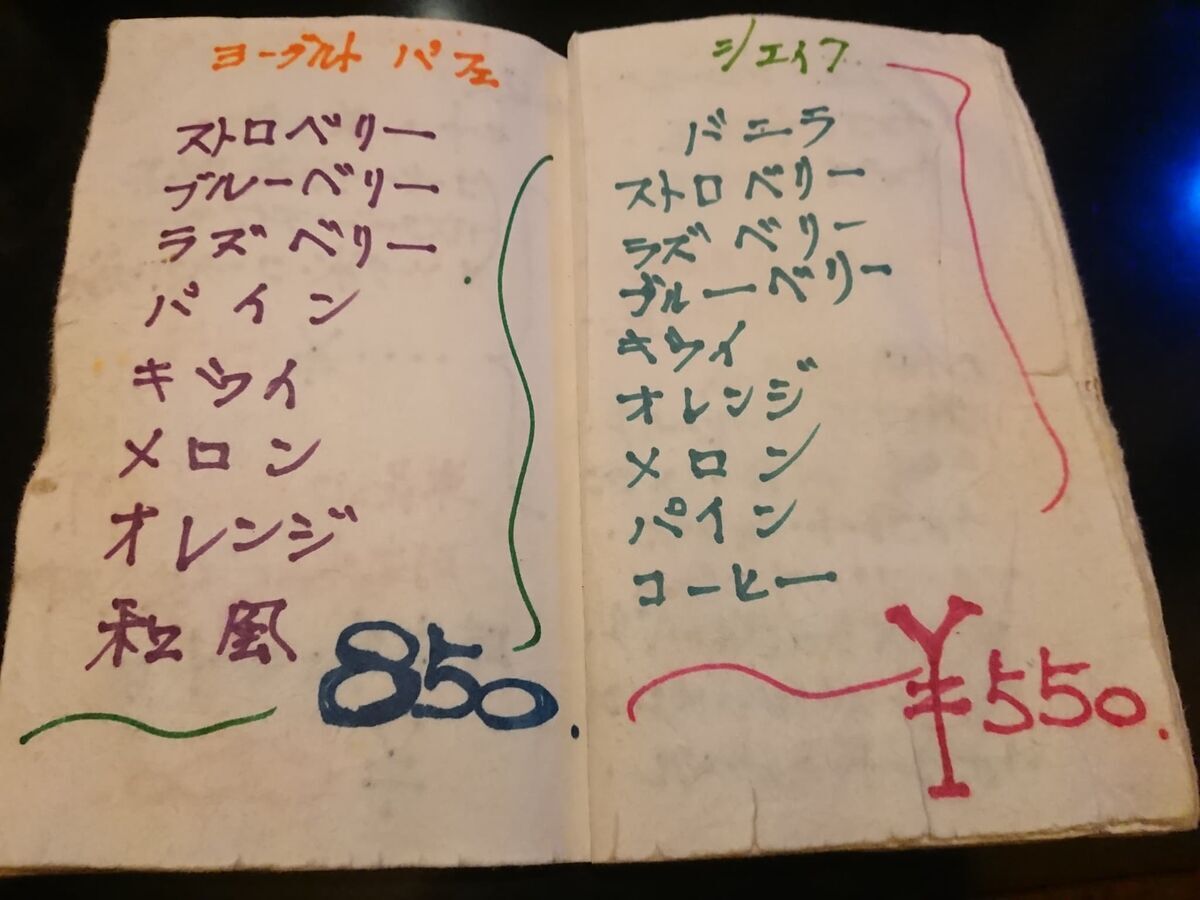 ヨーグルト パフェ
ストロベリー
ブルーベリー
ラズベリー
パイン
キウイ
メロン
オレンジ
和風
850.
シェイク
バニラ
ストロベリー
ラズベリー
ブルーベリー
キウイ
オレンジ
メロン
パイン
コーヒー
¥550.